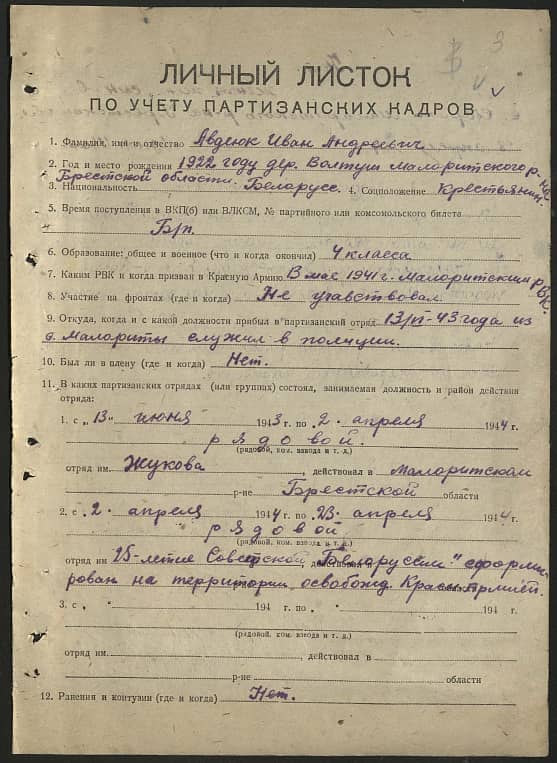 3
ЛИЧНЫЙ ЛИСТОК
ПО УЧЕТУ ПАРТИЗАНСКИХ КАДРОВ
1. Фамилия, имя и отчество Авдеюк Иван Андреевич
2. Год и место рождения 1922 году дер. Волтуш Малоритского р-на
Брестской области.
3. Национальность Беларусс. 4. Соцположение Крестьянин.
5. Время поступления в ВКП(б) или ВЛКСМ, № партийного или комсомольского билета
Б/п.
6. Образование: общее и военное (что и когда окончил) 4 класса
7. Каким РВК и когда призван в Красную Армию В мае 1941 г. Малоритским РВК.
8. Участие на фронтах (где и когда) Не учавствовал
9. Откуда, когда и с какой должности прибыл в партизанский отряд 13/VI-43 года из
д. Малориты служил в полиции.
10. Был ли в плену (где и когда) Нет.
11. В каких партизанских отрядах (или группах) состоял, занимаемая должность и район действия
отряда:
1. с „13" июня 1943 г. по „2" апреля 1944 г.
рядовой.
(рядовой, ком. взвода и т. д.)
отряд им. Жукова, действовал в Малоритском
р-не Брестской области
2. с „2" апреля 1944 г. по „23" апреля 1944 г.
рядовой
(рядовой, ком. взвода и т. д.)
отряд им 25-летие Советской Белоруссии" сформи-
рован на территории освобожд. Красн. Армией.
3. с „ " 194 г. по „ " 194 г.
(рядовой, ком. взвода и т. д.)
отряд им. , действовал в
р-не области
12. Ранения и контузии (где и когда) Нет.